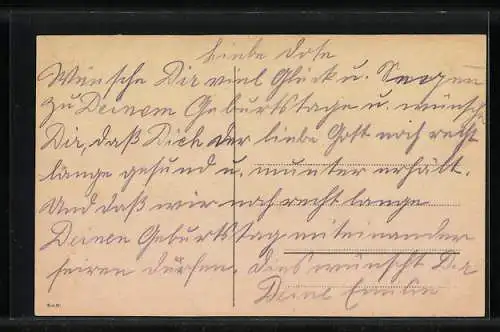 Liebe Dose
Wünsche Dir viel Glück u. Seegen
zu Deinem Geburtstage u. wünsche
Dir, daß Dich der liebe Gott noch recht
lange gesund u. munter erhält.
Und daß wir noch recht lange
Deinen Geburtstag miteinander
feiren dürfen. Dies wünscht Dir
Deine